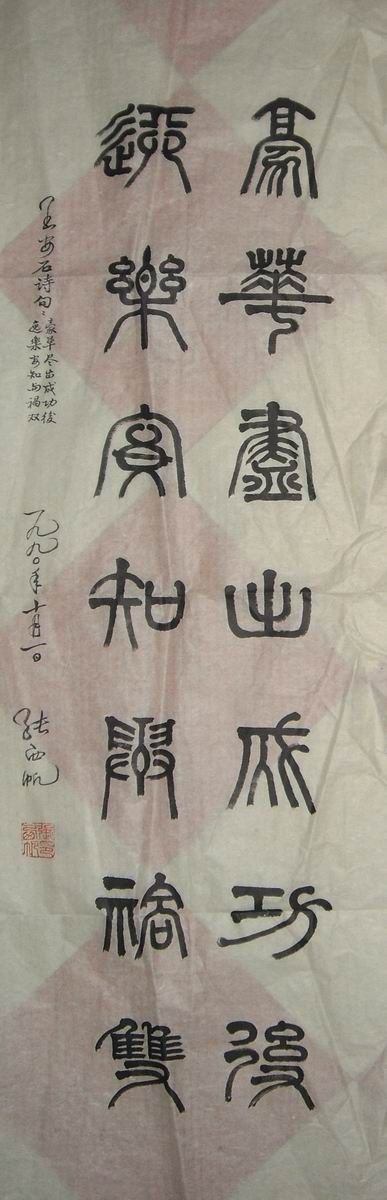 豪華盡出成功後
逸樂安知與禍雙
王安石诗句：
豪华尽出成功後
逸樂安知与禍双
一九九〇年十月一日
张西帆